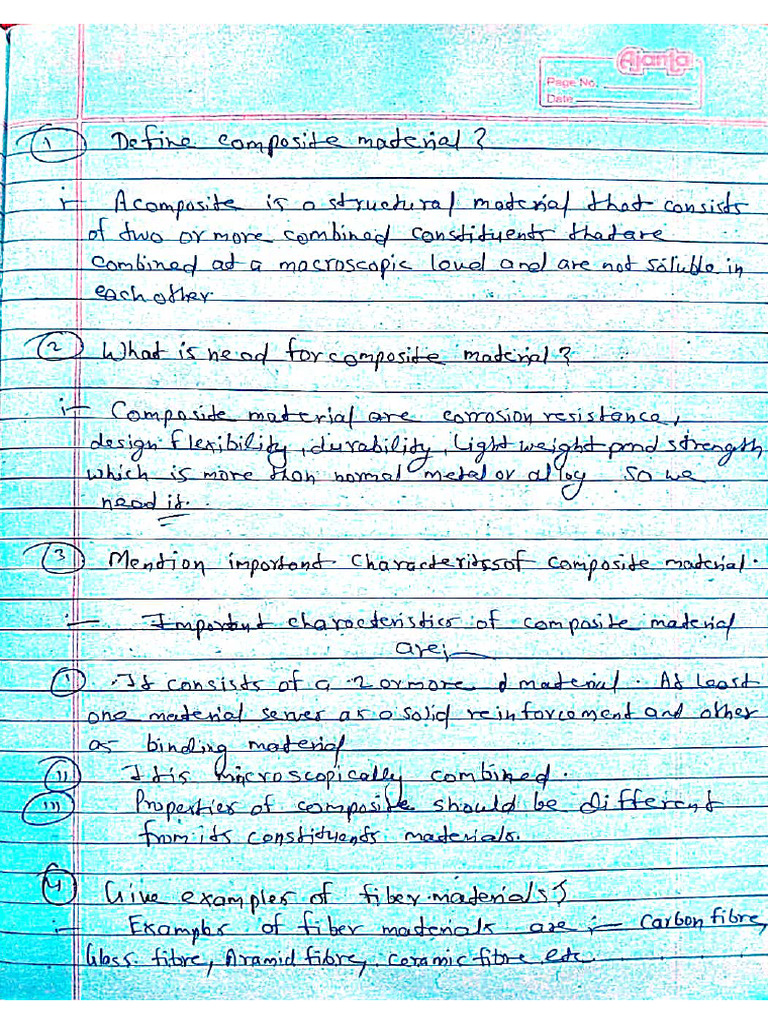 Ajanta
Page No.
Date
1 Define composite material?
:- A composite is a structural material that consists
of two or more combined constituents that are
combined at a macroscopic level and are not soluble in
each other.
2 What is need for composite material?
:- Composite material are corrosion resistance,
design flexibility, durability, light weight and strength
which is more than normal metal or alloy so we
need it.
3 Mention important characteritss of composite material.
:- Important characteristics of composite material
are:-
i It consists of a 2 or more d material. At least
one material serves as a solid reinforcement and other
as binding material
ii It is microscopically combined.
iii Properties of composite should be different
from its constituents materials.
4 Give examples of fiber materials?
:- Examples of fiber materials are :- Carbon fibre,
Glass fibre, Aramid fibre, ceramic fibre etc